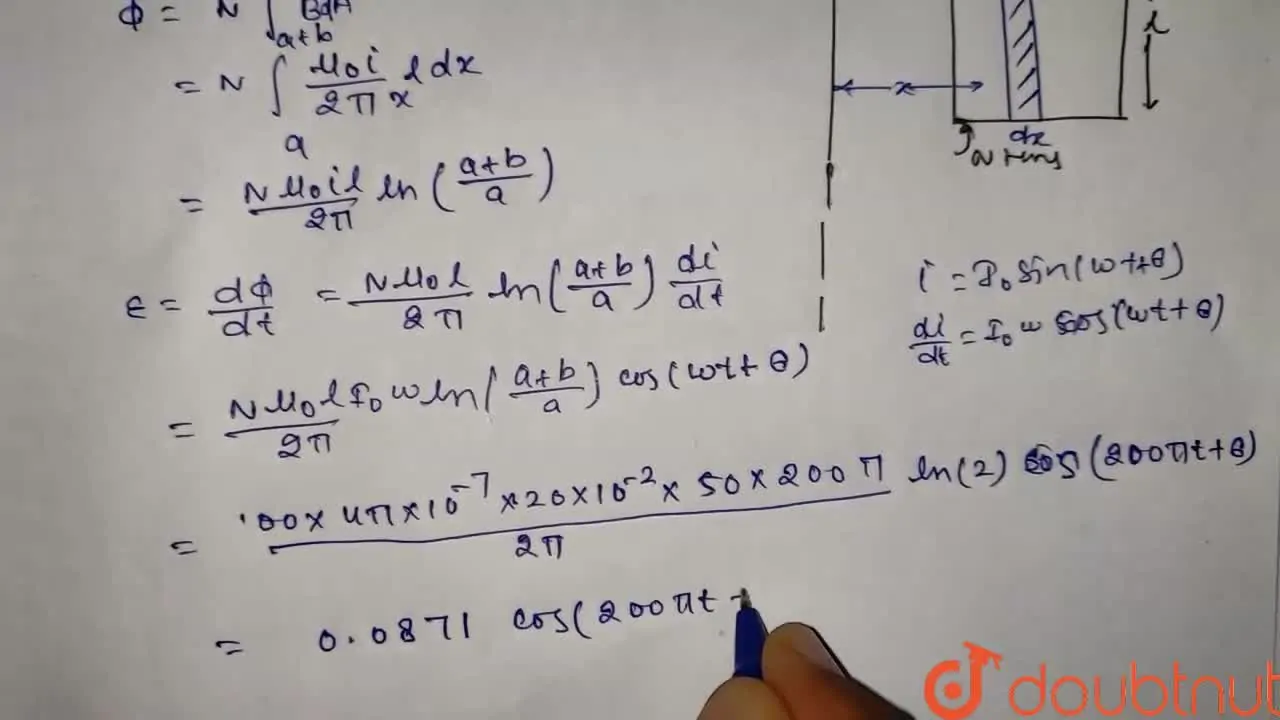 Φ = N ∫ BdA
a+b
= N ∫ μ₀i/2πx l dx
a
= Nμ₀il/2π ln(a+b/a)
ε = dϕ/dt = Nμ₀l/2π ln(a+b/a) di/dt
= Nμ₀lI₀ω/2π ln(a+b/a) cos(ωt+θ)
= 100×4π×10⁻⁷×20×10⁻²×50×200π/2π ln(2) cos(200πt+θ)
= 0.0871 cos(200πt +
l
x
dx
N turns
i = I₀ sin(ωt+θ)
di/dt = I₀ω cos(ωt+θ)
doubtnut